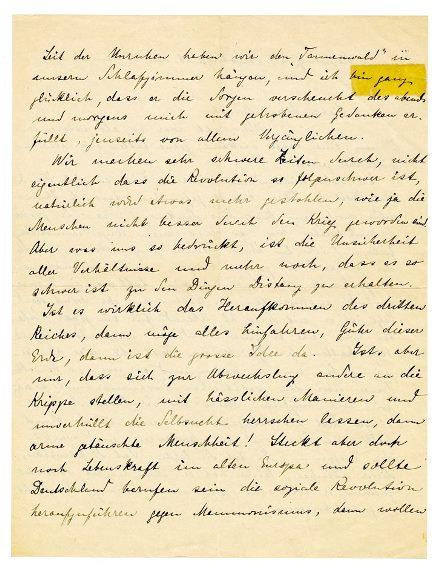 Seit der Unruhen haben wir den „Tannenwald" in
unserm Schlafzimmer hängen, und ich bin ganz
glücklich, dass er die Sorgen verscheucht des abends
und morgens mich mit gehobenen Gedanken er-
füllt, jenseits von allem Vergänglichen.
Wir machen sehr schwere Zeiten durch, nicht
eigentlich dass die Revolution so folgenschwer ist,
natürlich wird etwas mehr gestohlen, wie ja die
Menschen nicht besser durch den Krieg geworden sind.
Aber was uns so bedrückt, ist die Unsicherheit
aller Verhältnisse und mehr noch, dass es so
schwer ist zu den Dingen Distanz zu erhalten.
Ist es wirklich das Heraufkommen des dritten
Reiches, dann möge alles hinfahren, Güter dieser
Erde, dann ist die grosse Idee da. Ists aber
nur, dass sich zur Abwechslug andere an die
Krippe stellen, mit hässlichen Manieren und
unverhüllt die Selbsucht herrschen lassen, dann
arme getäuschte Menschheit! Steckt aber doch
noch Lebenskraft im alten Europa und sollte
Deutschland berufen sein die soziale Revolution
heraufzuführen gegen Mammonismus, dann wollen